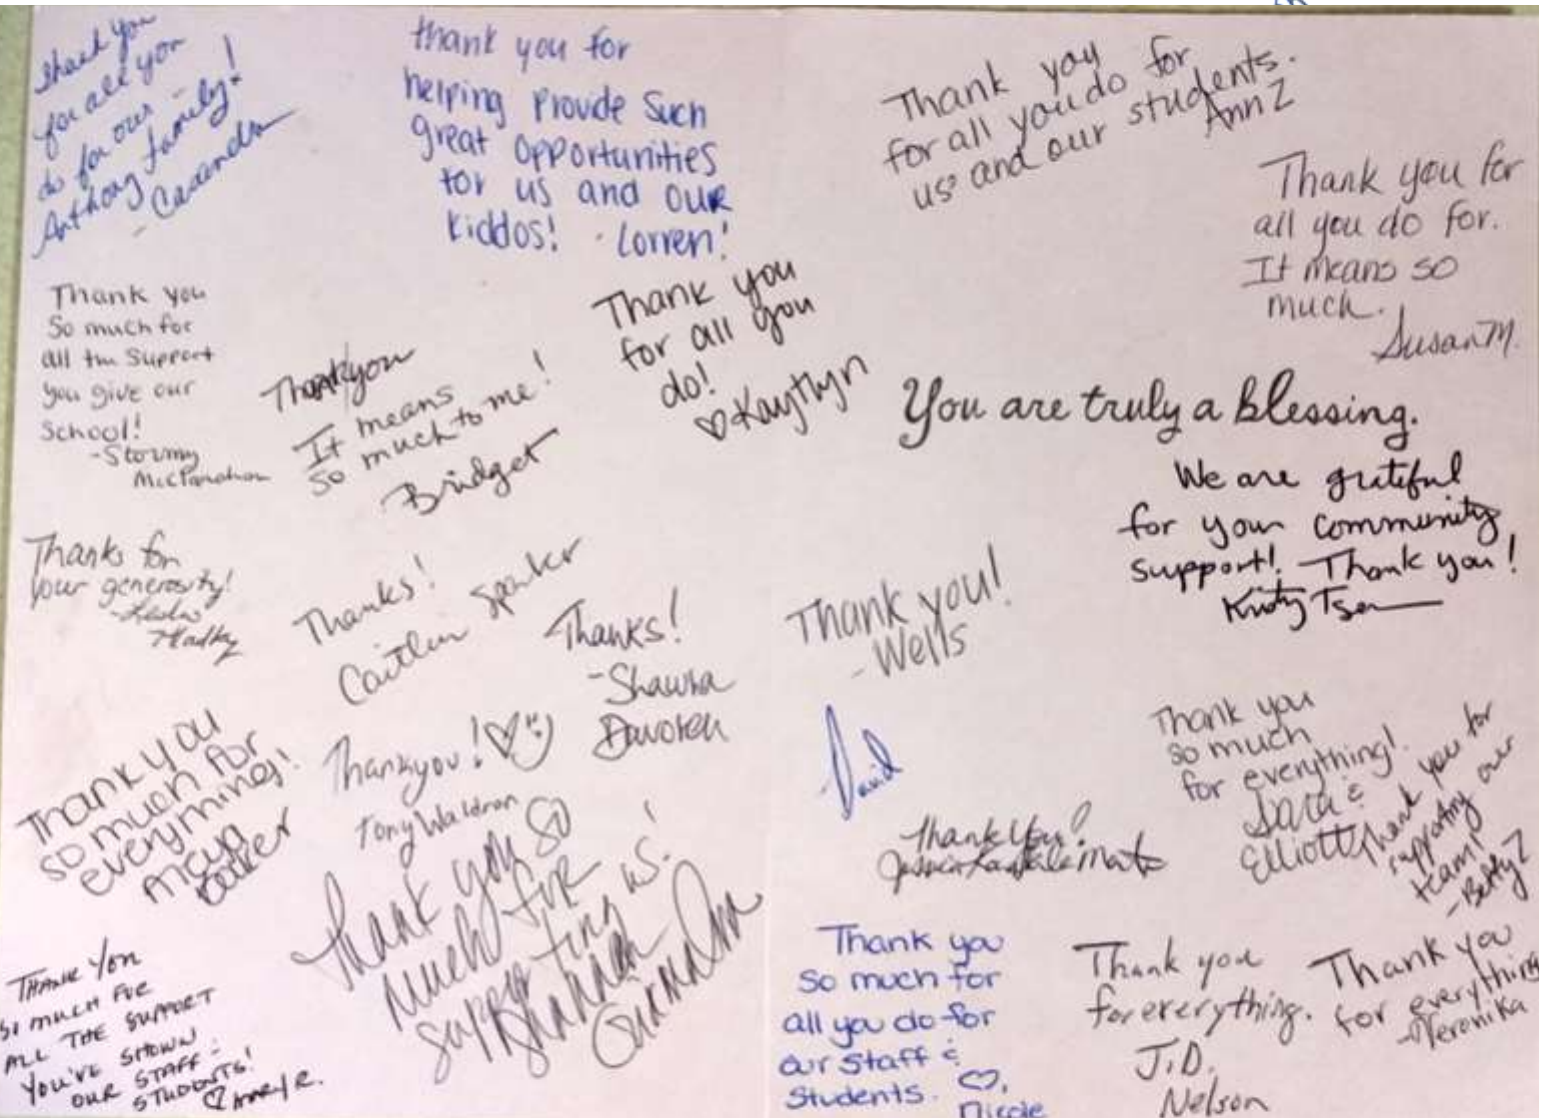 thank you
for all you
do for our
Anthony family!
- Casandra
thank you for
helping provide such
great opportunities
for us and our
kiddos! - Lorren!
Thank you
for all you do for
us and our students.
Ann Z
Thank you for
all you do for.
It means so
much.
Susan M.
Thank you
So much for
all the support
you give our
School!
- Stormy
Thankyou
It means
so much to me!
Bridget
Thank you
for all you
do!
♡ Kaytlyn
You are truly a blessing.
We are grateful
for your community
support! Thank you!
Thanks for
your generosity!
Thanks!
Caitlin
Thanks!
- Shawna
Thank you!
- Wells
David
Thank you
so much for
everything!
Thankyou! ♡ :)
Tony Waldron
Thank you so
much for
supporting us!
Shannah
Thank You!
Thank you
so much
for everything!
Sara &
Elliott
Thank you for
supporting our
team!
- Betty Z
THANK YOU
SO MUCH FOR
ALL THE SUPPORT
YOU'VE SHOWN
OUR STAFF &
STUDENTS!
♡ Mary R.
Thank you
so much for
all you do for
our staff &
Students. ♡,
Nicole
Thank you
for everything.
J.D.
Nelson
Thank you
for everything
- Veronika